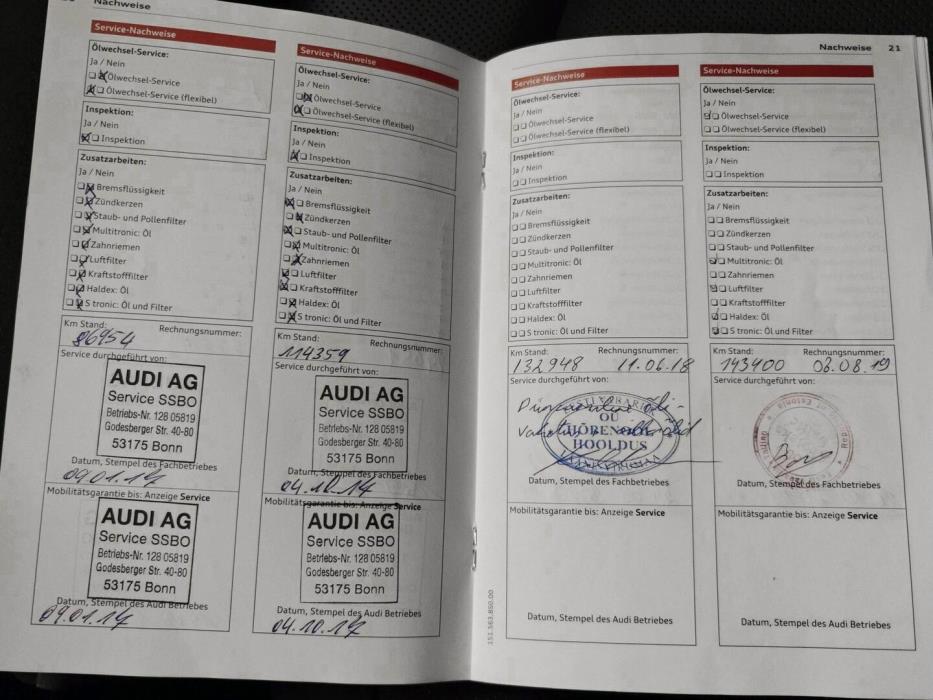 Nachweise
Service-Nachweise
Ölwechsel-Service:
Ja / Nein
Ölwechsel-Service
Ölwechsel-Service (flexibel)
Inspektion:
Ja / Nein
Inspektion
Zusatzarbeiten:
Ja / Nein
Bremsflüssigkeit
Zündkerzen
Staub- und Pollenfilter
Multitronic: Öl
Zahnriemen
Luftfilter
Kraftstofffilter
Haldex: Öl
S tronic: Öl und Filter
Km Stand: Rechnungsnummer:
86954
Service durchgeführt von:
AUDI AG
Service SSBO
Betriebs-Nr. 128 05819
Godesberger Str. 40-80
53175 Bonn
Datum, Stempel des Fachbetriebes
09.01.17
Mobilitätsgarantie bis: Anzeige Service
AUDI AG
Service SSBO
Betriebs-Nr. 128 05819
Godesberger Str. 40-80
53175 Bonn
Datum, Stempel des Audi Betriebes
09.01.17
Service-Nachweise
Ölwechsel-Service:
Ja / Nein
Ölwechsel-Service
Ölwechsel-Service (flexibel)
Inspektion:
Ja / Nein
Inspektion
Zusatzarbeiten:
Ja / Nein
Bremsflüssigkeit
Zündkerzen
Staub- und Pollenfilter
Multitronic: Öl
Zahnriemen
Luftfilter
Kraftstofffilter
Haldex: Öl
S tronic: Öl und Filter
Km Stand: Rechnungsnummer:
114359
Service durchgeführt von:
AUDI AG
Service SSBO
Betriebs-Nr. 128 05819
Godesberger Str. 40-80
53175 Bonn
Datum, Stempel des Fachbetriebes
04.10.17
Mobilitätsgarantie bis: Anzeige Service
AUDI AG
Service SSBO
Betriebs-Nr. 128 05819
Godesberger Str. 40-80
53175 Bonn
Datum, Stempel des Audi Betriebes
04.10.17
Nachweise 21
Service-Nachweise
Ölwechsel-Service:
Ja / Nein
Ölwechsel-Service
Ölwechsel-Service (flexibel)
Inspektion:
Ja / Nein
Inspektion
Zusatzarbeiten:
Ja / Nein
Bremsflüssigkeit
Zündkerzen
Staub- und Pollenfilter
Multitronic: Öl
Zahnriemen
Luftfilter
Kraftstofffilter
Haldex: Öl
S tronic: Öl und Filter
Km Stand: Rechnungsnummer:
132948 11.06.18
Service durchgeführt von:
OÜ
HOOLDUS
Datum, Stempel des Fachbetriebes
Mobilitätsgarantie bis: Anzeige Service
Datum, Stempel des Audi Betriebes
151.563.850.00
Service-Nachweise
Ölwechsel-Service:
Ja / Nein
Ölwechsel-Service
Ölwechsel-Service (flexibel)
Inspektion:
Ja / Nein
Inspektion
Zusatzarbeiten:
Ja / Nein
Bremsflüssigkeit
Zündkerzen
Staub- und Pollenfilter
Multitronic: Öl
Zahnriemen
Luftfilter
Kraftstofffilter
Haldex: Öl
S tronic: Öl und Filter
Km Stand: Rechnungsnummer:
143400 08.08.19
Service durchgeführt von:
Datum, Stempel des Fachbetriebes
Mobilitätsgarantie bis: Anzeige Service
Datum, Stempel des Audi Betriebes